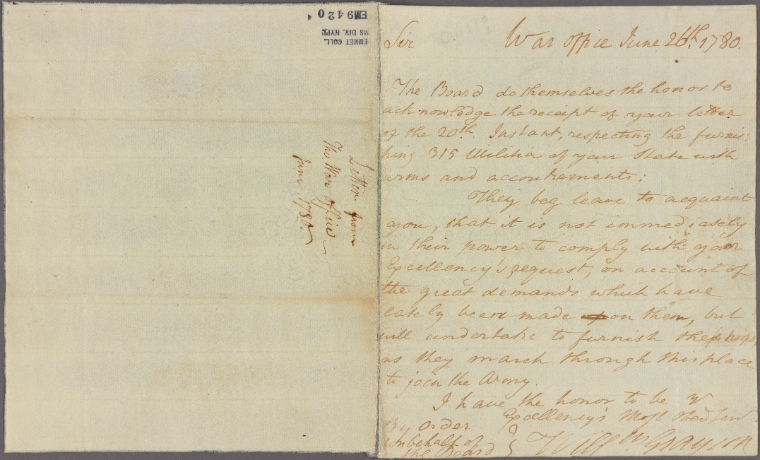 EM9420
EMMET COLL.
MS DIV. NYPL
Letter from
The War Office
June 1780.
Sir
War office June 26th. 1780.
The Board do themselves the honor to
acknowledge the receipt of your letter
of the 20th. Instant, respecting the furnis-
hing 315 Militia of your State with
arms and accoutrements:
They beg leave to acquaint
you, that it is not immediately
in their power to comply with your
Excellency's request, on account of
the great demands which have
lately been made upon them, but
will undertake to furnish the
as they march through this place
to join the Army.
I have the honor to be Yr
Excellency's Most Obed Serv
By Order
on behalf of
the Board
Willm Grayson